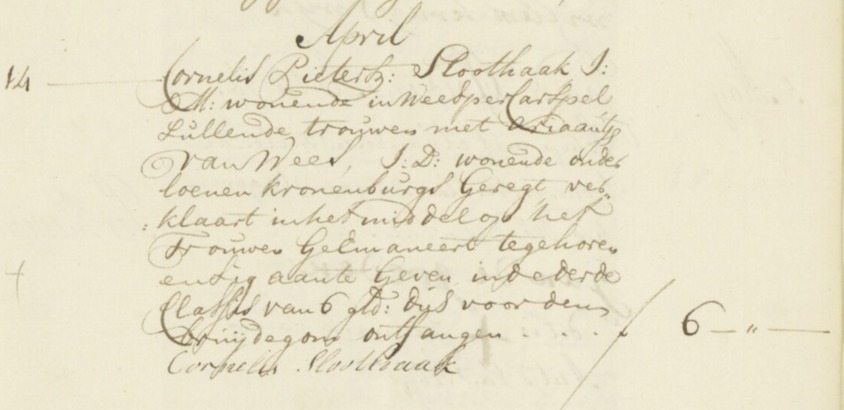 April
14 Cornelis Pietersz: Sloothaak J:
M: wonende in Weesper Carspel
Sullende trouwen met Ariaantje
van Wees, J: D: wonende onder
loenen kronenburgs Geregt ver„
: klaart in het middel op het
Trouwen Geëmaneert te gehoren
en sig aan te Geven in de derde
Classis van 6 gld: dus voor den
bruijdegom ontfangen . . . . 6 — „ —
Cornelis Sloothaak